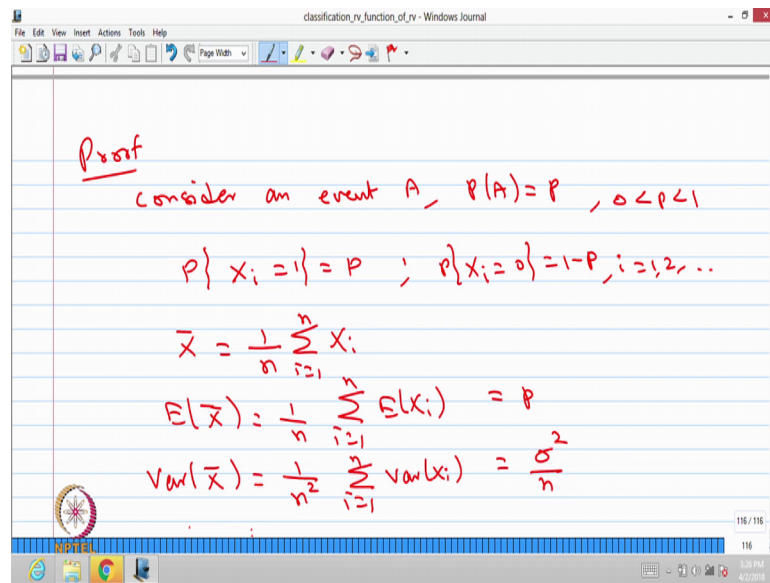 classification_rv_function_of_rv - Windows Journal
File Edit View Insert Actions Tools Help
Page Width
Proof
consider an event A, P(A) = P, 0 < P < 1
P{ Xi = 1} = P ; P{Xi = 0} = 1-P, i = 1,2,...
X̄ = 1/n ∑_{i=1}^{n} Xi
E(X̄) = 1/n ∑_{i=1}^{n} E(Xi) = P
Var(X̄) = 1/n² ∑_{i=1}^{n} Var(Xi) = σ²/n
116 / 116
NPTEL
116
3:28 PM
4/2/2018